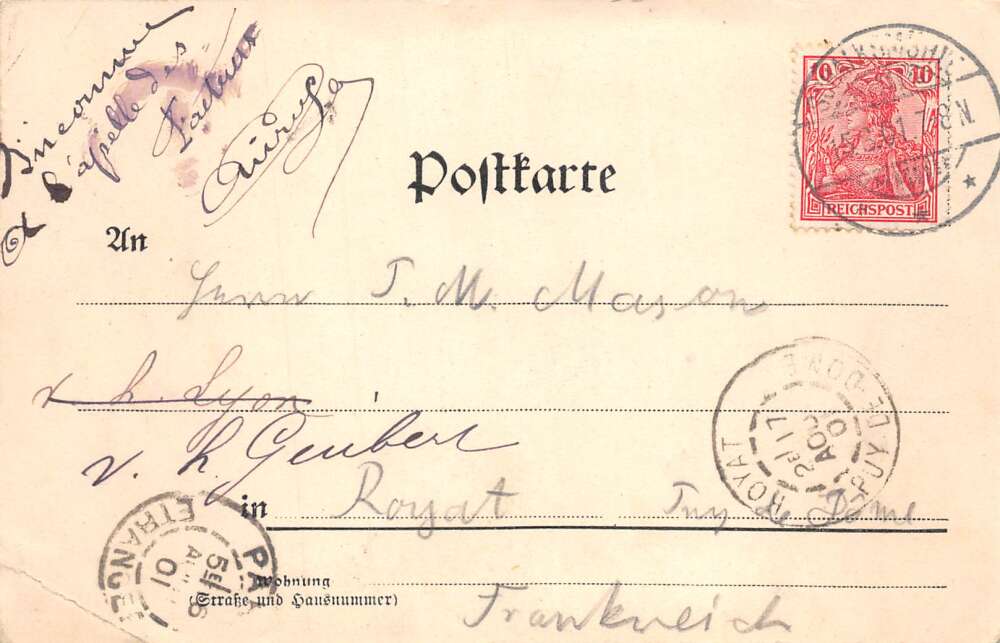 inconnu
l'appel des
facteurs
Postkarte
10 10
REICHSPOST
An
Herrn T. M. Mason
v. h. Lyon
v. h. Geubert
in Royat Puy de Dome
ROYAT PUY-DE-DOME
17
AOU
01
PA
ETRANGER
5E
16
01
Wohnung
(Straße und Hausnummer)
Frankreich